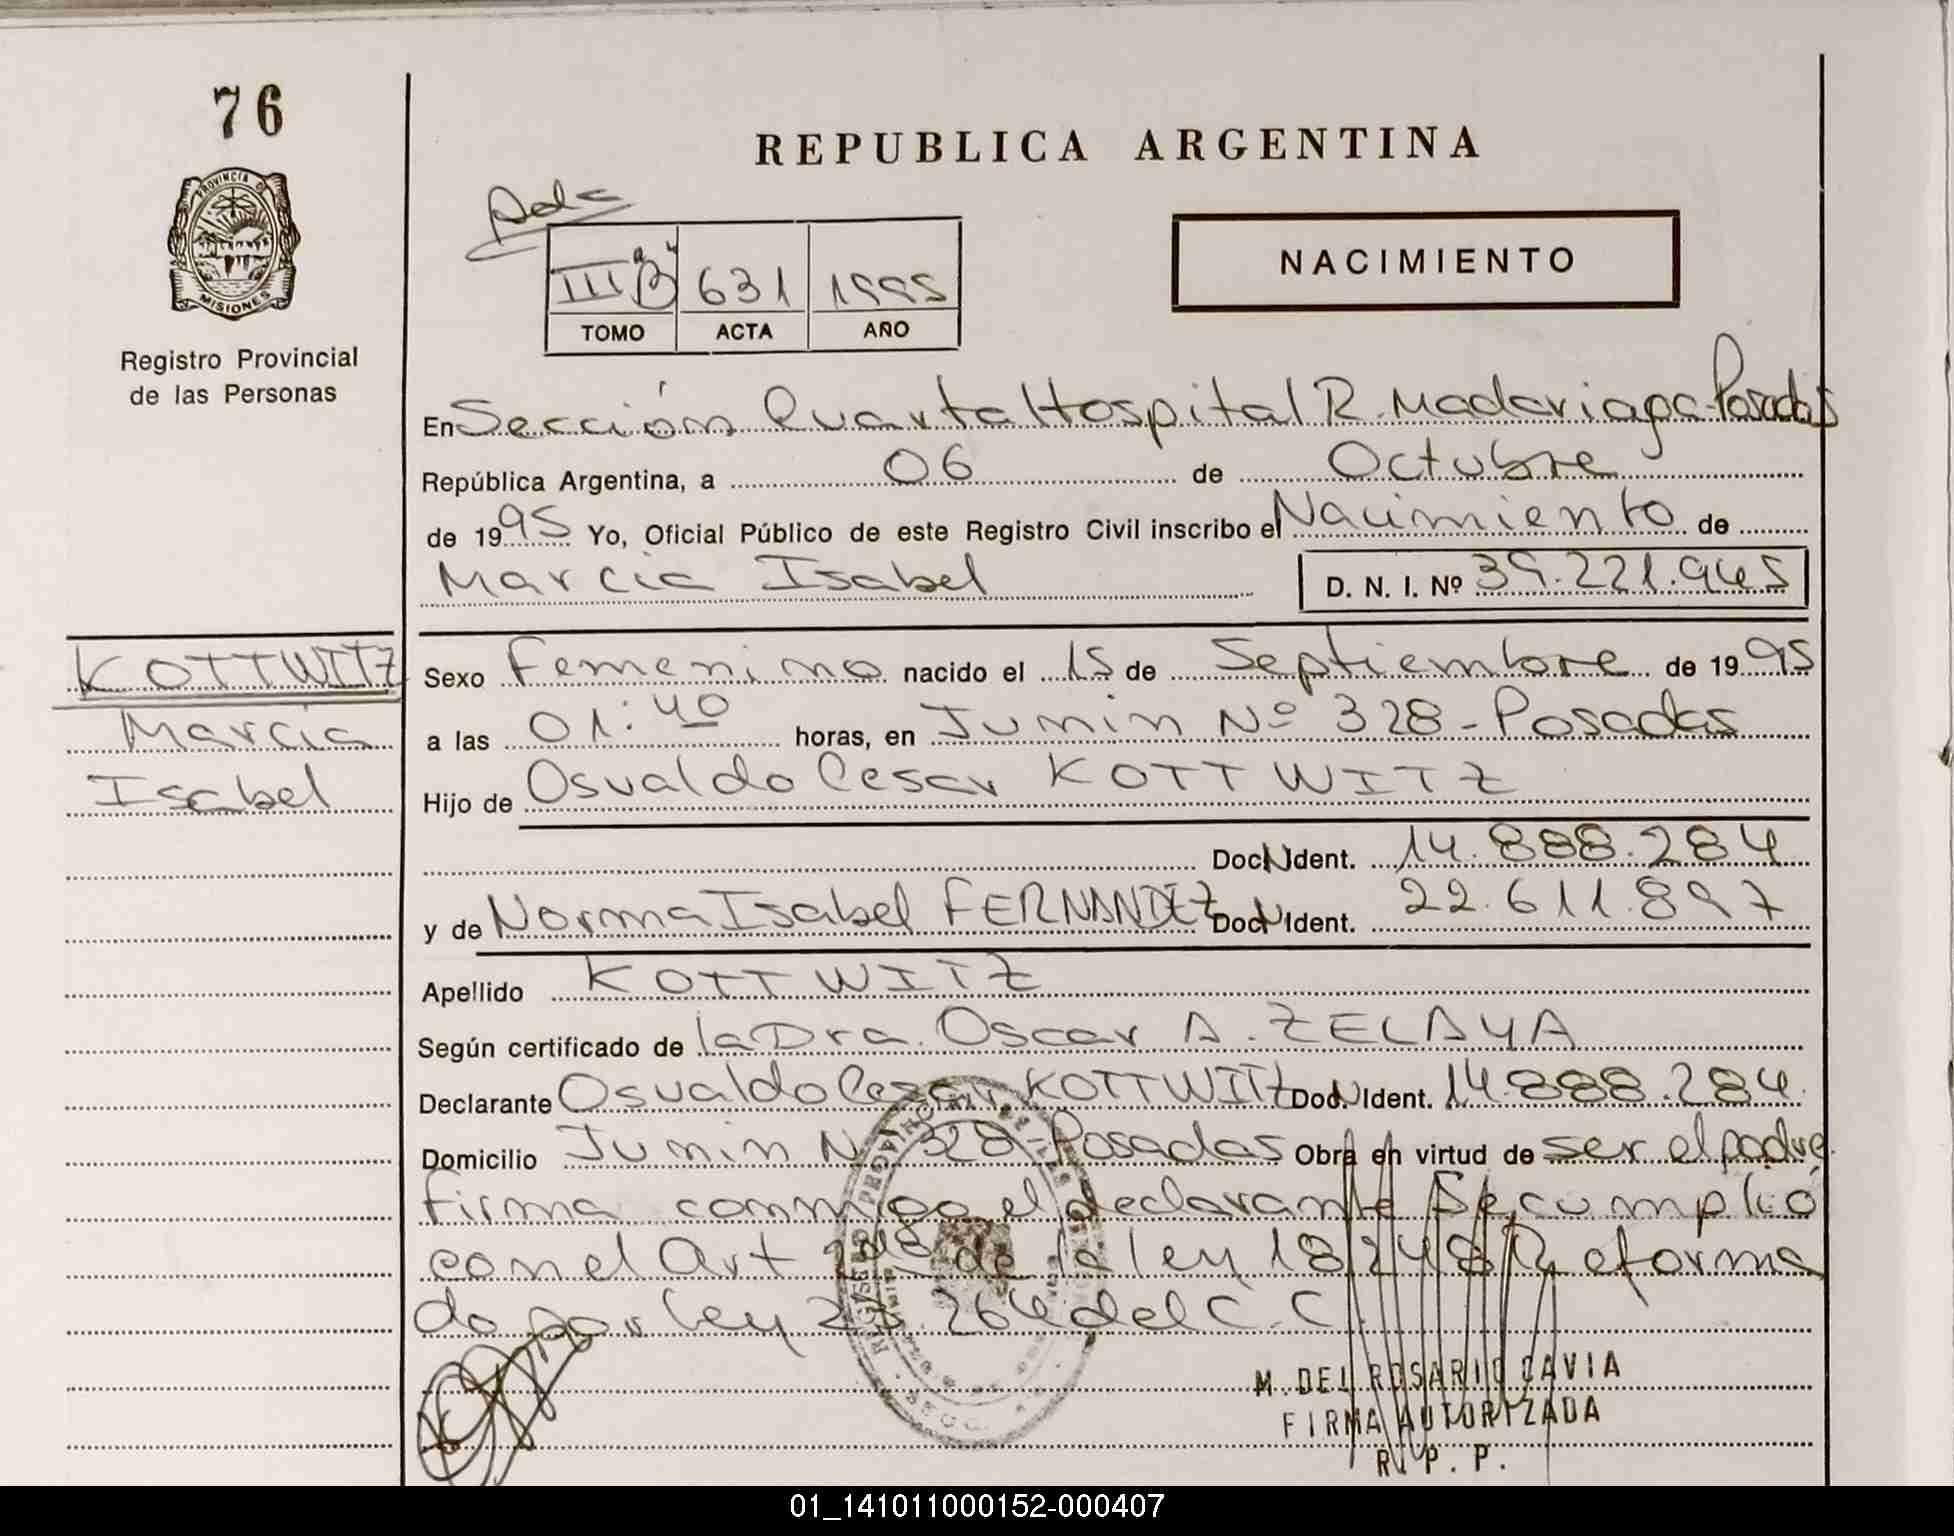 76
REPUBLICA ARGENTINA
PROVINCIA DE
MISIONES
Registro Provincial
de las Personas
III "B" 631 1995
TOMO ACTA AÑO
NACIMIENTO
En Sección Quarta Hospital R. Madariaga-Posadas
República Argentina, a 06 de Octubre
de 1995 Yo, Oficial Público de este Registro Civil inscribo el Nacimiento de
Marcia Isabel D. N. I. Nº 39.221.945
KOTTWITZ
Marcia
Isabel
Sexo Femenino nacido el 15 de Septiembre de 1995
a las 01:40 horas, en Junin Nº 328-Posadas
Hijo de Osvaldo Cesar KOTTWITZ
Doc. N Ident. 14.888.284
y de Norma Isabel FERNANDEZ Doc. N Ident. 22.611.897
Apellido KOTTWITZ
Según certificado de la Dra. Oscar A. ZELAYA
Declarante Osvaldo Cesar KOTTWITZ Doc. N Ident. 14.888.284
Domicilio Junin Nº 328-Posadas Obra en virtud de ser el padre
firma conmigo el declarante Se cumplió
con el Art de la ley 18248 Reforma
do por ley 23.264 del C.C.
M. DEL ROSARIO CAVIA
FIRMA AUTORIZADA
R. P. P.
01_141011000152-000407